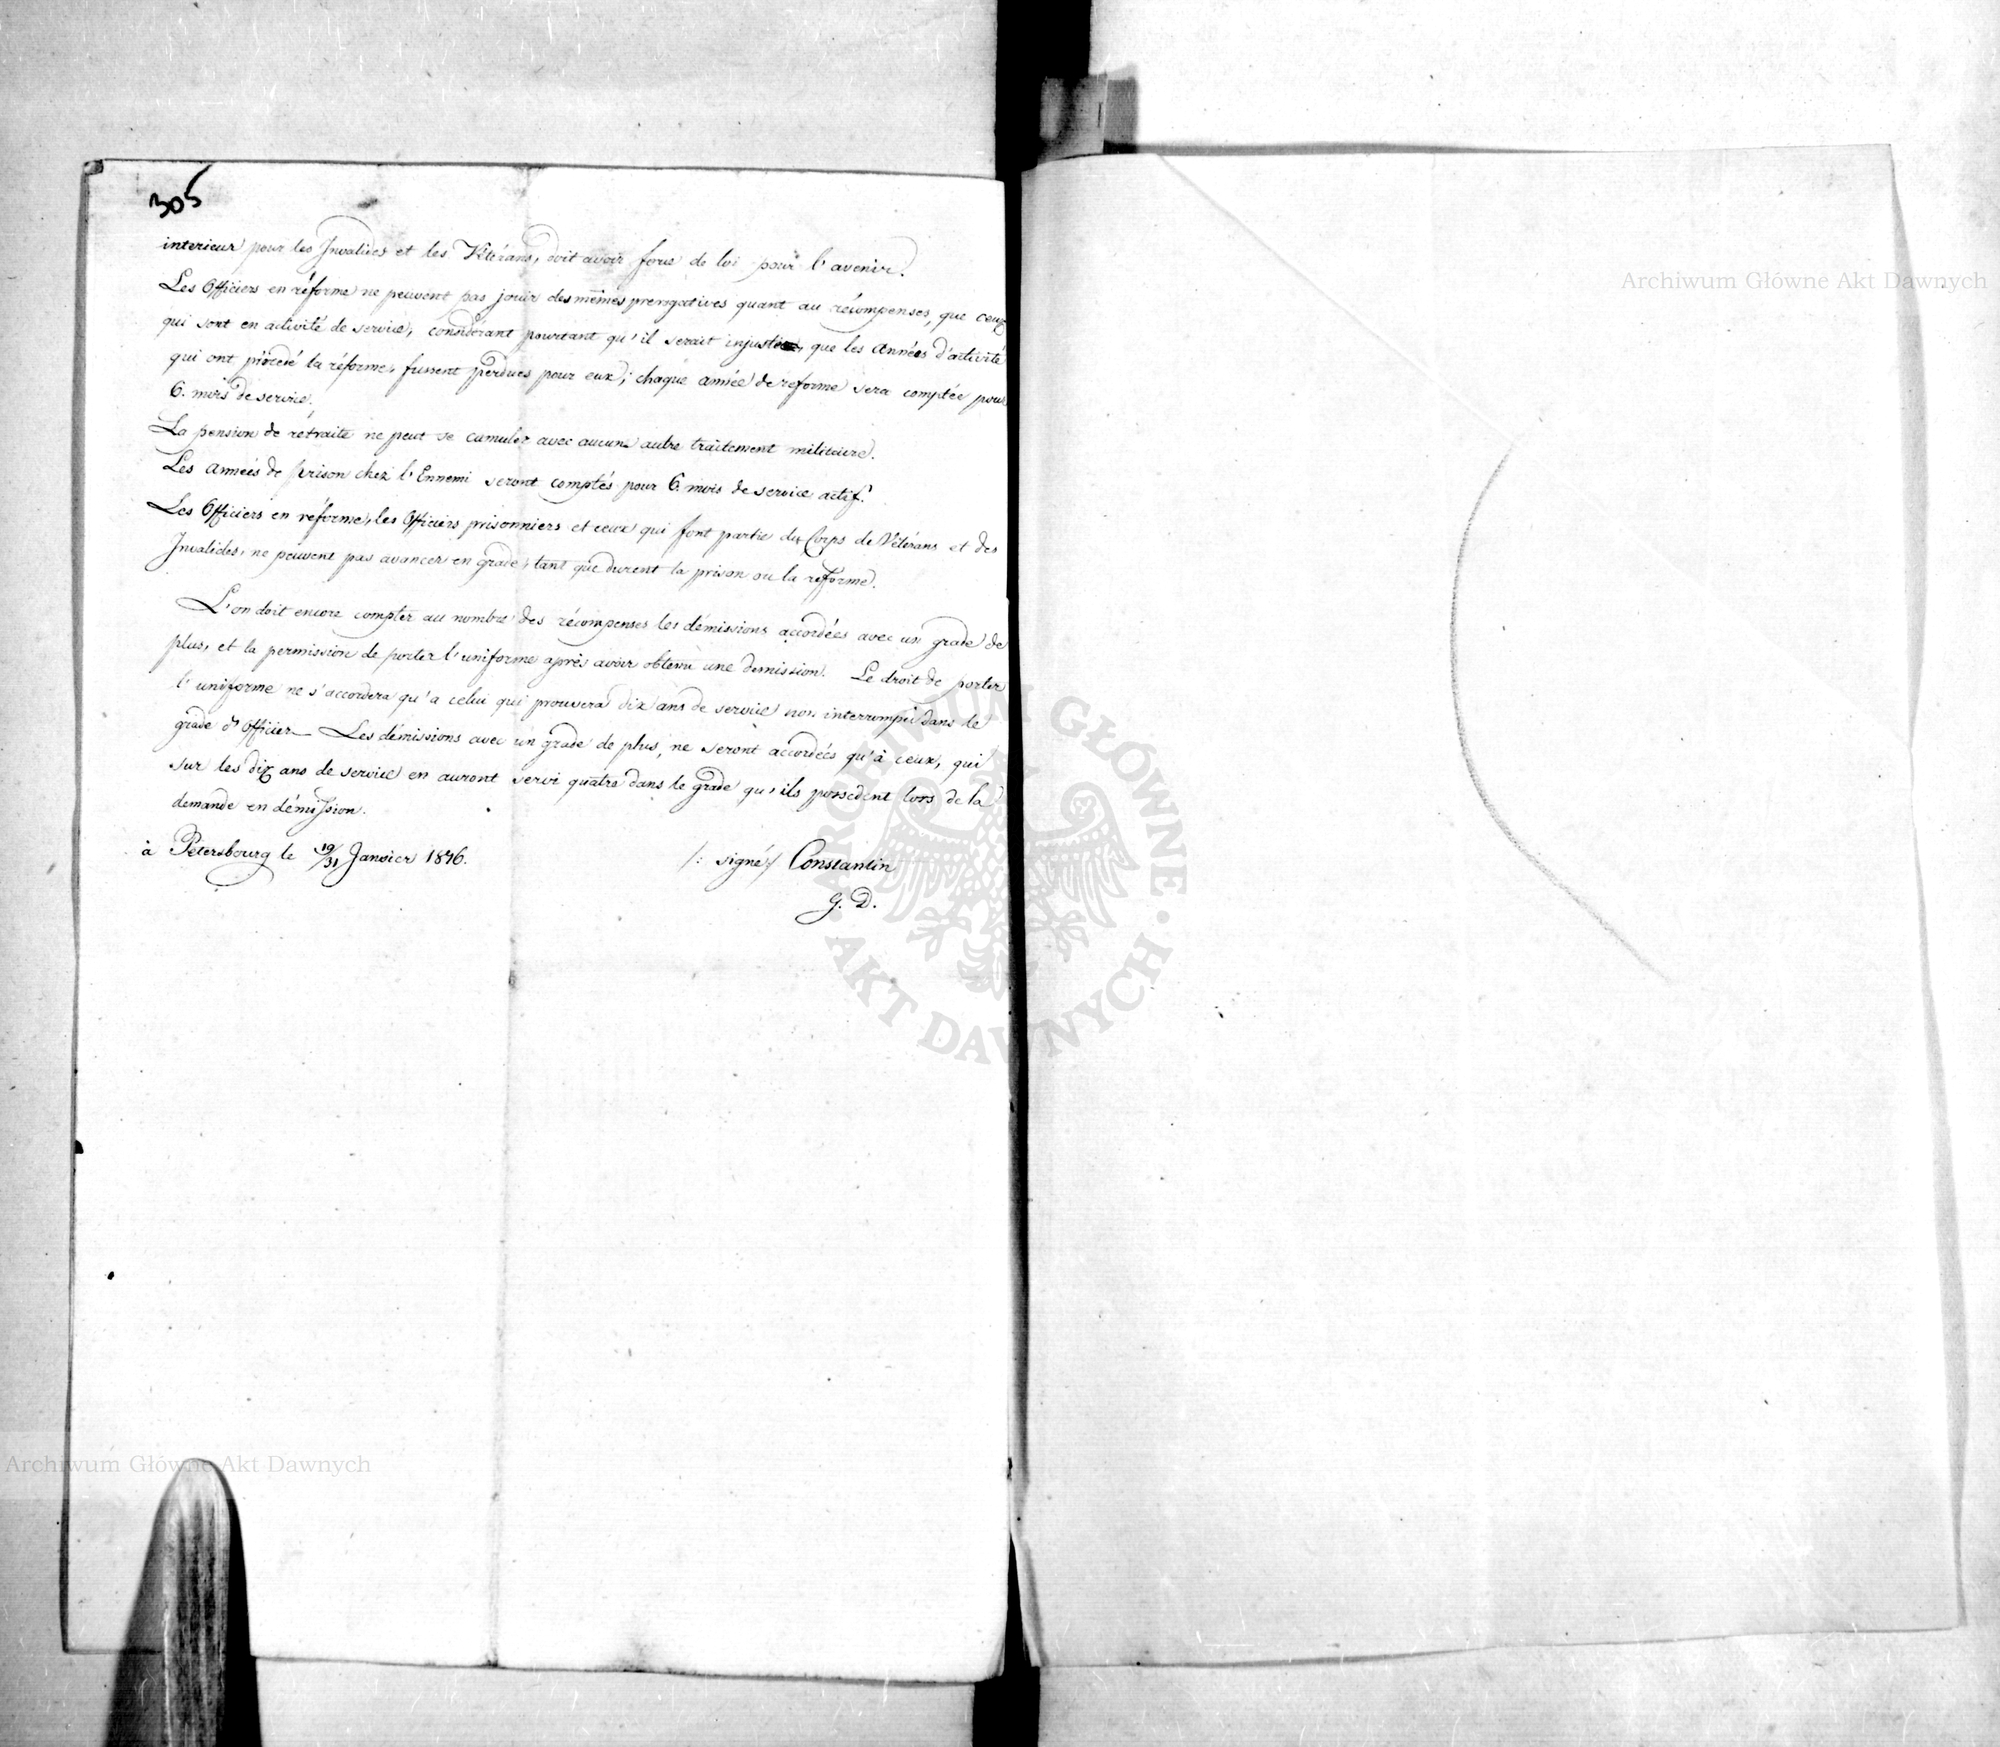 305
interieur pour les Invalides et les Vétérans, doit avoir force de loi pour l'avenir.
Les Officiers en réforme ne peuvent pas jouir des mêmes prerogatives quant au récompenses, que ceux
qui sont en activité de service, considérant pourtant qu'il serait injuste, que les Années d'activité
qui ont précédé la réforme, fussent perdues pour eux; chaque année de reforme sera comptée pour
6. mois de service.
La pension de retraite ne peut se cumuler avec aucune autre traitement militaire.
Les années de prison chez l'Ennemi seront comptés pour 6. mois de service actif.
Les Officiers en réforme, les Officiers prisonniers et ceux qui font partie du Corps de Vétérans et des
Invalides, ne peuvent pas avancer en grade, tant que durent la prison ou la reforme.
L'on doit encore compter au nombre des récompenses les démissions accordées avec un grade de
plus, et la permission de porter l'uniforme après avoir obtenu une demission. Le droit de porter
l'uniforme ne s'accordera qu'a celui qui prouvera dix ans de service non interrompu dans le
grade d'Officier — Les démissions avec un grade de plus, ne seront accordées qu'à ceux, qui
sur les dix ans de service en auront servi quatre dans le grade qu'ils possedent lors de la
demande en démission.
à Pétersbourg le 19/31 Janvier 1816.
/: signé :/ Constantin
G. D.
Archiwum Główne Akt Dawnych
Archiwum Główne Akt Dawnych
ARCHIWUM GŁÓWNE · AKT DAWNYCH ·